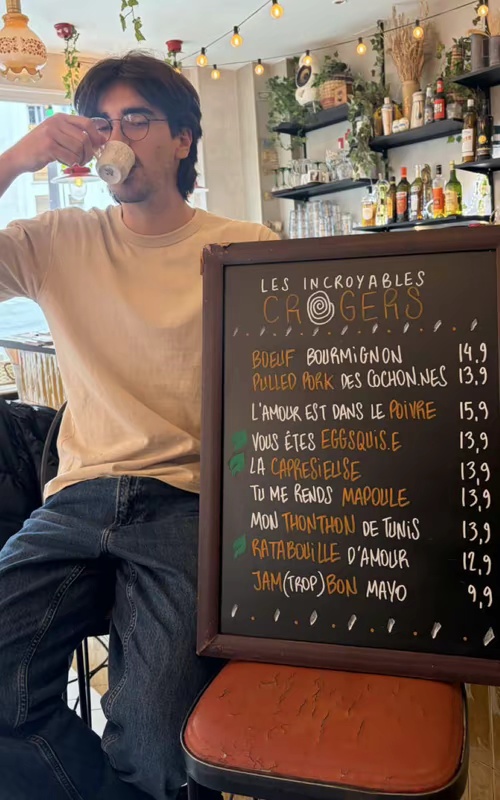 LES INCROYABLES
CROGERS
BOEUF BOURMIGNON 14,9
PULLED PORK DES COCHON.NES 13,9
L'AMOUR EST DANS LE POIVRE 15,9
VOUS ÊTES EGGSQUIS.E 13,9
LA CAPRESIEUSE 13,9
TU ME RENDS MAPOULE 13,9
MON THONTHON DE TUNIS 13,9
RATABOUILLE D'AMOUR 12,9
JAM(TROP)BON MAYO 9,9